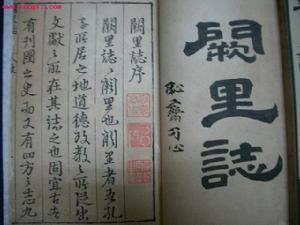 闕里誌
闕里誌序
闕里誌誌闕里也闕里者吾孔
子所居之地道德政教之所從出
文獻之所在其誌之也固宜古者
有列國之史而又有四方之志凡